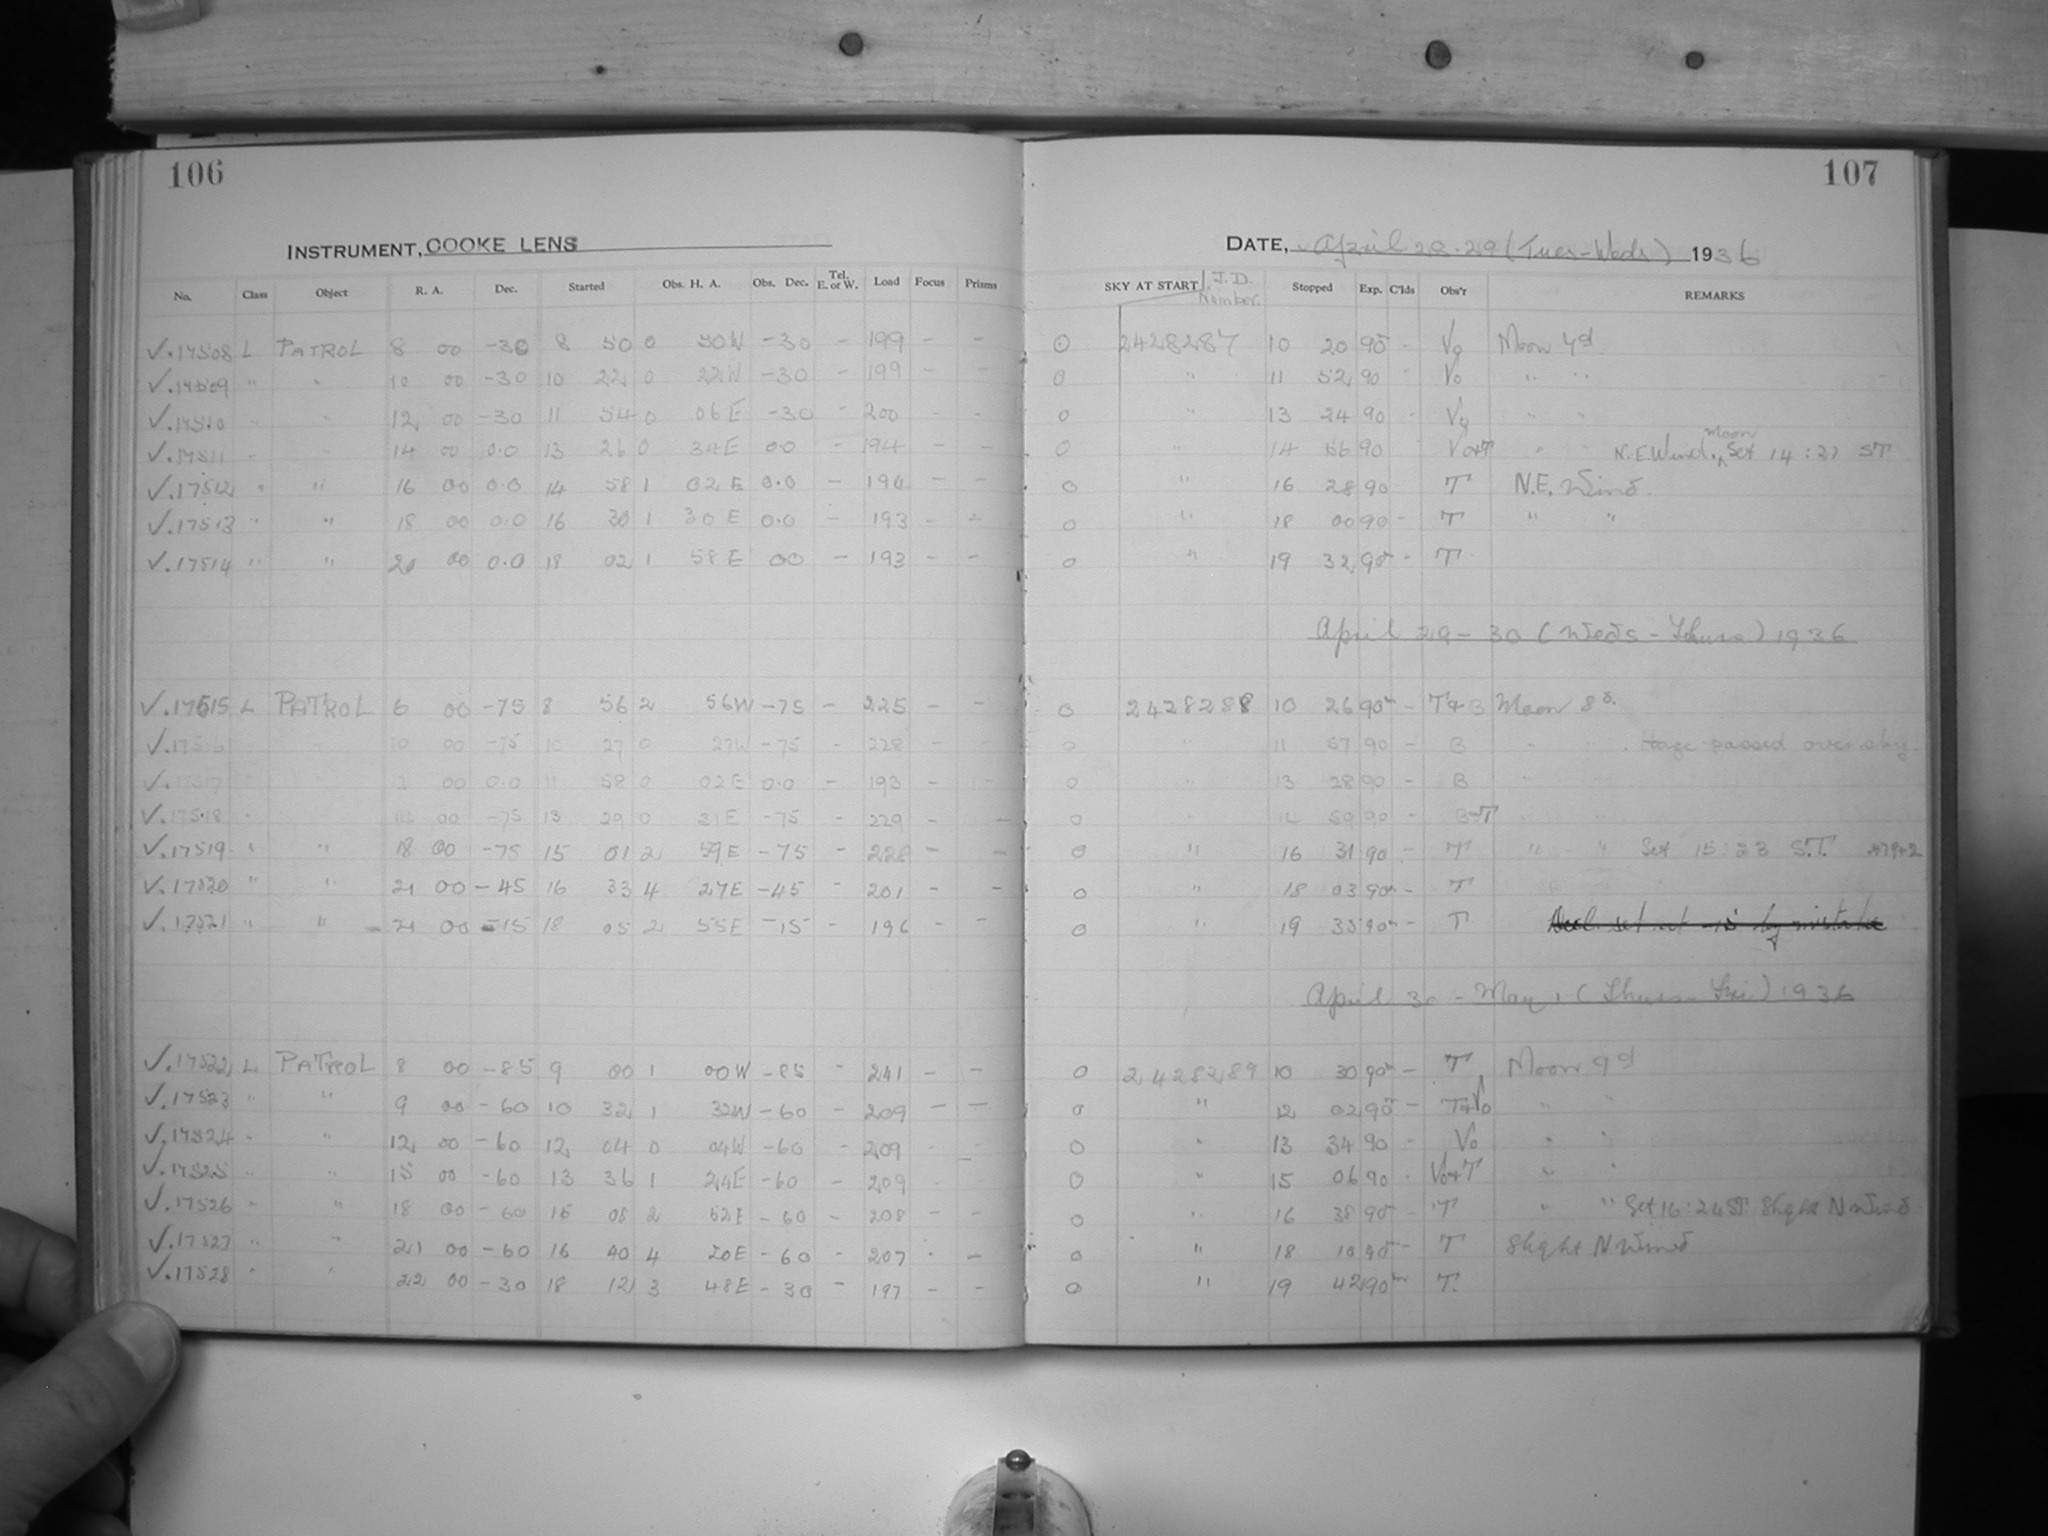 106
107
INSTRUMENT, COOKE LENS
DATE, April 28-29 (Tues-Weds) 1936
No. Class Object R. A. Dec. Started Obs. H. A. Obs. Dec. Tel. E. or W. Load Focus Prisms SKY AT START J.D. Number Stopped Exp. C'lds Obs'r REMARKS
✓.17508 L PATROL 8 00 -30 8 50 0 50W -30 - 199 - - 0 2428287 10 20 90 - Vo Moon 7d
✓.17509 " " 10 00 -30 10 22 0 22W -30 - 199 - - 0 " 11 52 90 - Vo " "
✓.17510 " " 12 00 -30 11 54 0 06E -30 - 200 - - 0 " 13 24 90 - Vo " "
✓.17511 " " 14 00 0.0 13 26 0 34E 0.0 - 194 - - 0 " 14 56 90 Vo+T " N.E. Wind. Moon Set 14:27 ST
✓.17512 " " 16 00 0.0 14 58 1 02E 0.0 - 194 - - 0 " 16 28 90 T N.E. Wind.
✓.17513 " " 18 00 0.0 16 30 1 30E 0.0 - 193 - - 0 " 18 00 90 - T " "
✓.17514 " " 20 00 0.0 18 02 1 58E 00 - 193 - - 0 " 19 32 90 - T
April 29-30 (Weds-Thurs) 1936
✓.17515 L PATROL 6 00 -75 8 56 2 56W -75 - 225 - - 0 2428288 10 26 90m - T+B Moon 8d.
✓.17516 " 10 00 -75 10 27 0 27W -75 - 228 - 0 " 11 57 90 - B " " . Haze passed over sky
✓.17517 " 12 00 0.0 11 58 0 02E 0.0 - 193 - - 0 " 13 28 90 - B "
✓.17518 " 14 00 -75 13 29 0 31E -75 - 229 - - 0 " 14 59 90 - B+T "
✓.17519 " " 18 00 -75 15 01 2 59E -75 - 228 - - 0 " 16 31 90 - T " " Set 15:23 S.T.
✓.17520 " " 21 00 -45 16 33 4 27E -45 - 201 - - 0 " 18 03 90m - T
✓.17521 " " 21 00 -15 18 05 2 55E -15 - 196 - - 0 " 19 35 90m - T Decl. set at -15 by mistake
April 30 - May 1 (Thurs-Fri) 1936
✓.17522 L PATROL 8 00 -85 9 00 1 00W -85 - 241 - - 0 2428289 10 30 90m - T Moon 9d
✓.17523 " " 9 00 -60 10 32 1 32W -60 - 209 - - 0 " 12 02 90 - T+Vo " "
✓.17524 " " 12 00 -60 12 04 0 04W -60 - 209 - - 0 " 13 34 90 - Vo " "
✓.17525 " " 15 00 -60 13 36 1 24E -60 - 209 - - 0 " 15 06 90 - Vo+T " "
✓.17526 " " 18 00 -60 15 08 2 52E -60 - 208 - - 0 " 16 38 90 - T " " Set 16:24 ST Slight N Wind
✓.17527 " " 21 00 -60 16 40 4 20E -60 - 207 - - 0 " 18 10 90 - T Slight N Wind
✓.17528 " " 22 00 -30 18 12 3 48E -30 - 197 - - 0 " 19 42 90m - T.